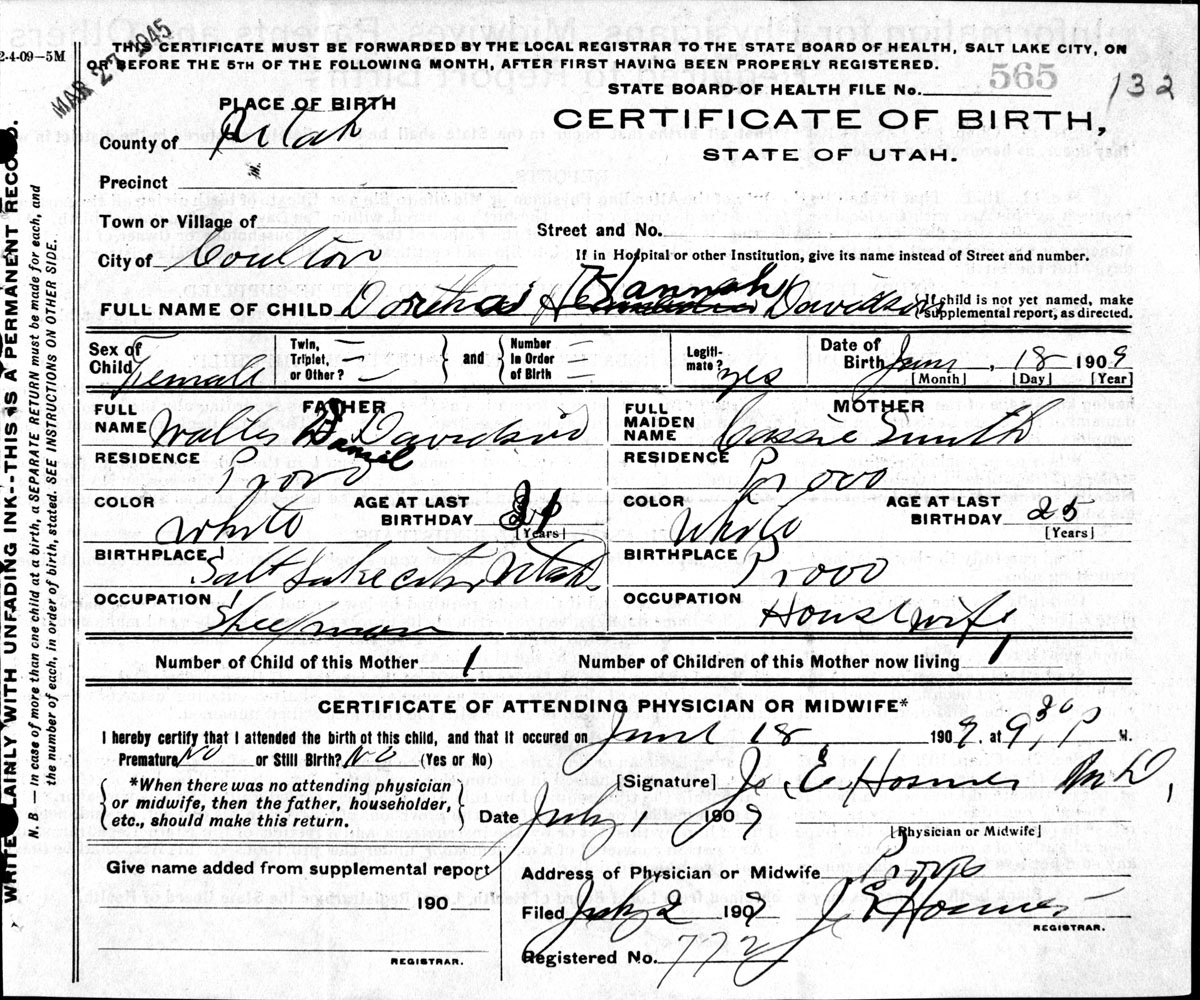 MAR 27 1945
2-4-09—5M
THIS CERTIFICATE MUST BE FORWARDED BY THE LOCAL REGISTRAR TO THE STATE BOARD OF HEALTH, SALT LAKE CITY, ON
OR BEFORE THE 5TH OF THE FOLLOWING MONTH, AFTER FIRST HAVING BEEN PROPERLY REGISTERED.
STATE BOARD OF HEALTH FILE No. 565 132
PLACE OF BIRTH
CERTIFICATE OF BIRTH,
STATE OF UTAH.
County of Utah
Precinct
Town or Village of
Street and No.
City of Coulton
If in Hospital or other Institution, give its name instead of Street and number.
FULL NAME OF CHILD Doritha Hannah Davidson
If child is not yet named, make supplemental report, as directed.
Sex of Child Female
Twin, Triplet, or Other? — and Number in Order of Birth —
Legitimate? yes
Date of Birth June 18 1909
[Month] [Day] [Year]
FATHER
FULL NAME Walter Daniel Davidson
RESIDENCE Provo
COLOR White AGE AT LAST BIRTHDAY 31 [Years]
BIRTHPLACE Salt Lake City Utah
OCCUPATION Sheepman
MOTHER
FULL MAIDEN NAME Cassie Smith
RESIDENCE Provo
COLOR White AGE AT LAST BIRTHDAY 23 [Years]
BIRTHPLACE Provo
OCCUPATION Housewife
Number of Child of this Mother 1 Number of Children of this Mother now living 1
CERTIFICATE OF ATTENDING PHYSICIAN OR MIDWIFE*
I hereby certify that I attended the birth of this child, and that it occured on June 18, 1909, at 9:30 P M.
Premature NO or Still Birth? NO (Yes or No)
*When there was no attending physician
or midwife, then the father, householder,
etc., should make this return.
[Signature] J. E. Hosmer M D,
Date July 1909
[Physician or Midwife]
Give name added from supplemental report
190
REGISTRAR.
Address of Physician or Midwife Provo
Filed July 2 1909 J E Hosmer
REGISTRAR.
Registered No. 772
WRITE PLAINLY WITH UNFADING INK--THIS IS A PERMANENT RECORD.
N.B.— In case of more than one child at a birth, a SEPARATE RETURN must be made for each, and
the number of each, in order of birth, stated. SEE INSTRUCTIONS ON OTHER SIDE.